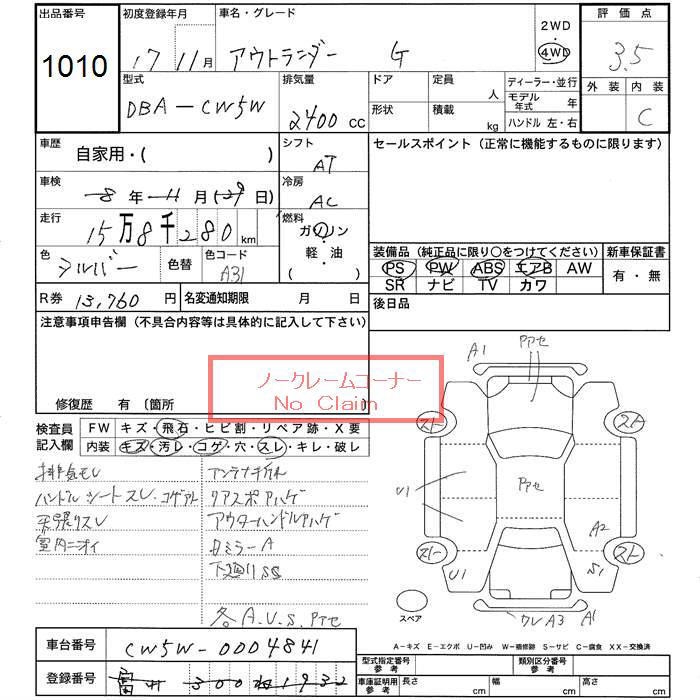 出品番号 初度登録年月 車名・グレード 2WD 評価点
1010 17年 11月 アウトランダー G 4WD 3.5
型式 排気量 ドア 定員 人 ディーラー・並行 外装 内装
DBA-CW5W 2400 cc 形状 積載 kg モデル年式 年 C
ハンドル 左・右
車歴 自家用・( ) シフト AT セールスポイント (正常に機能するものに限ります)
車検 8年 11月 (29日) 冷房 AC
走行 15万8千280 km 燃料 ガソリン
軽・油
( )
色 シルバー 色替 色コード A31
装備品 (純正品に限り○をつけてください) 新車保証書
PS PW ABS エアB AW 有・無
SR ナビ TV カワ
R券 13,760円 名変通知期限 月 日 後日品
注意事項申告欄 (不具合内容等は具体的に記入して下さい)
ノークレームコーナー
No Claim
修復歴 有 〔箇所 〕
検査員 FW キズ・飛石・ヒビ割・リペア跡・X要
記入欄 内装 キズ・汚レ・コゲ・穴・スレ・キレ・破レ
排気モレ アンテナ折れ
ハンドル シートスレ コゲアト リアスポハゲ
天張リスレ アウターハンドルハゲ
室内ニオイ 日ミラーA
下廻リSS
各A.U.S.アセ
A1 アセ
スト スト
U1 アセ A2
スト スト
U1 S1
スペア ワレ A3 A1
A-キズ E-エクボ U-凹み W-補修跡 S-サビ C-腐食 XX-交換済
車台番号 CW5W-0004841
型式指定番号 参考 類別区分番号 参考
登録番号 300 1932
車庫証明用 参考 長さ cm 幅 cm 高さ cm